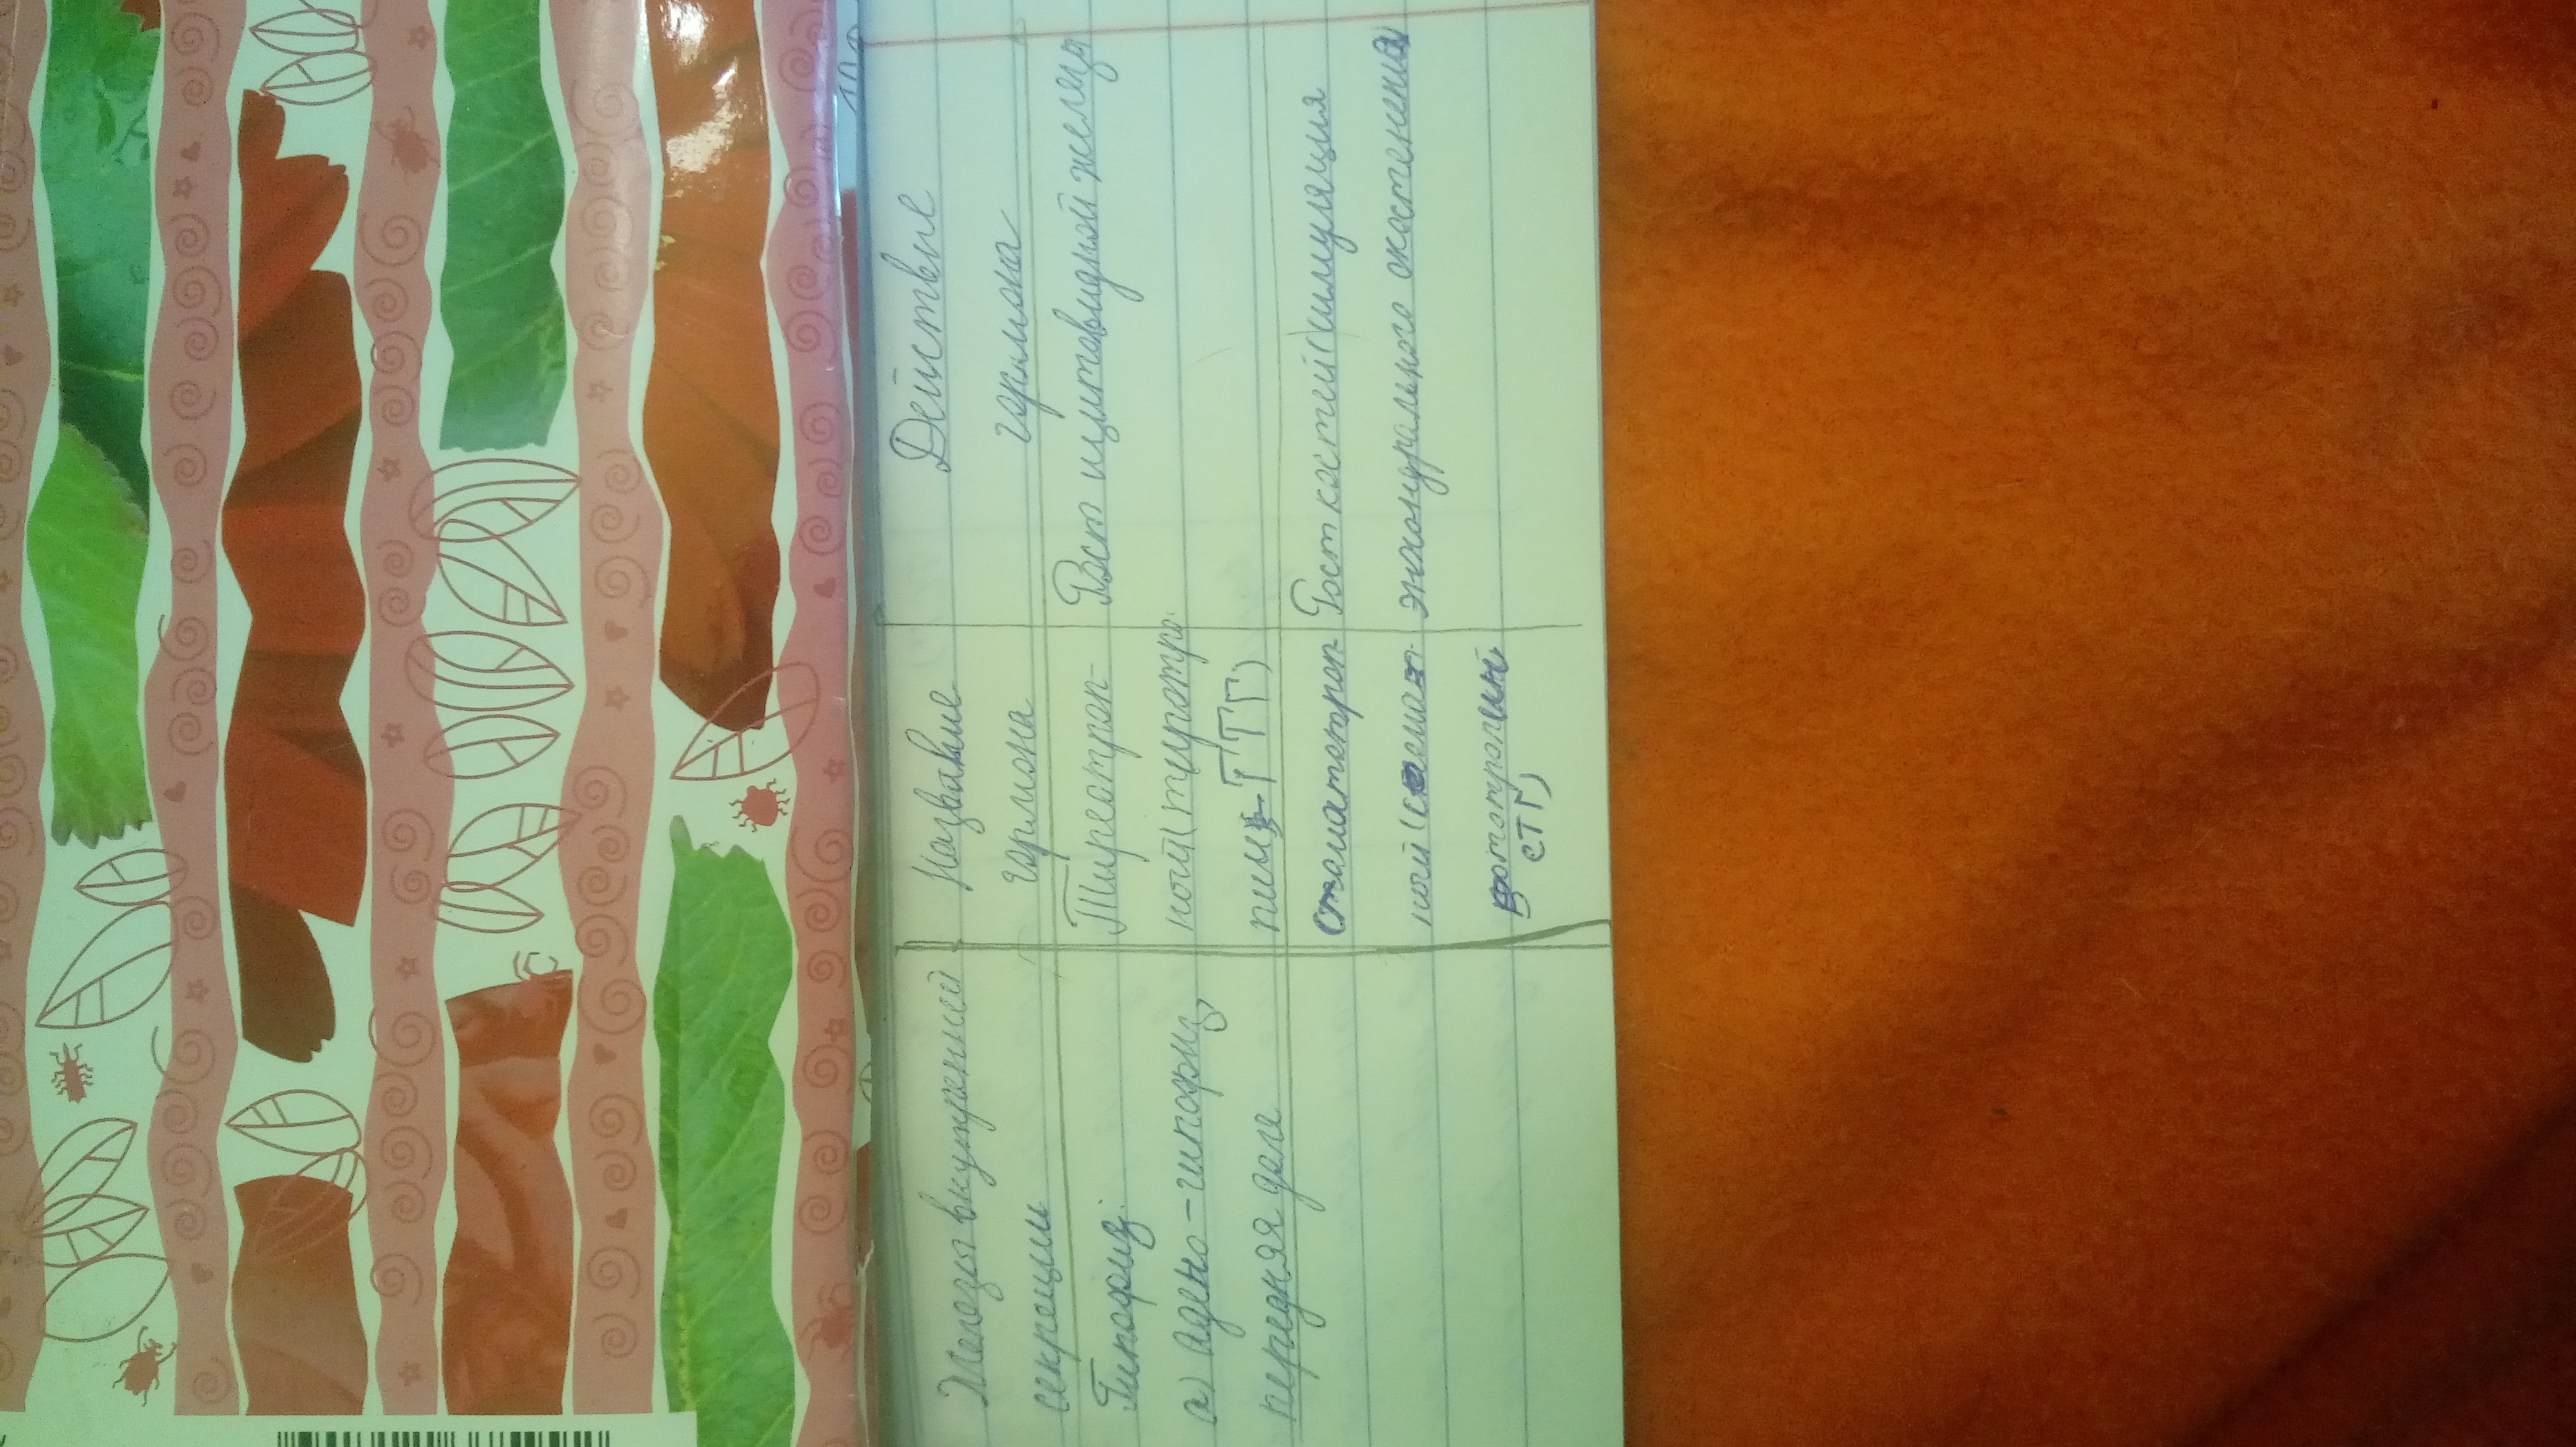 Железы внутренней
секреции
Название
гормона
Действие
гормона
Гипофиз.
а) Адено-гипофиз,
передняя доля
Тиреотроп-
ной (тиреотро
пин - ТТГ)
Рост щитовидной железы
Соматотроп-
ной (сомат
отропин
СТГ)
Рост костей (симуляция
энхондрального окостенения